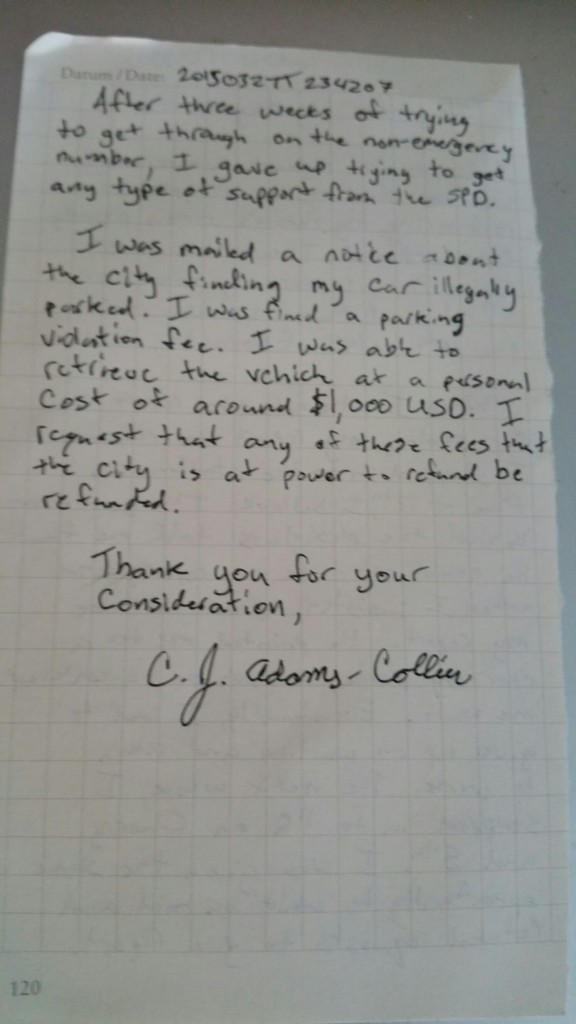 Datum / Date: 20150327T234207
After three weeks of trying
to get through on the non-emergency
number, I gave up trying to get
any type of support from the SPD.
I was mailed a notice about
the city finding my car illegally
parked. I was fined a parking
violation fee. I was able to
retrieve the vehicle at a personal
cost of around $1,000 USD. I
request that any of these fees that
the city is at power to refund be
refunded.
Thank you for your
Consideration,
C.J. Adams-Collier
120